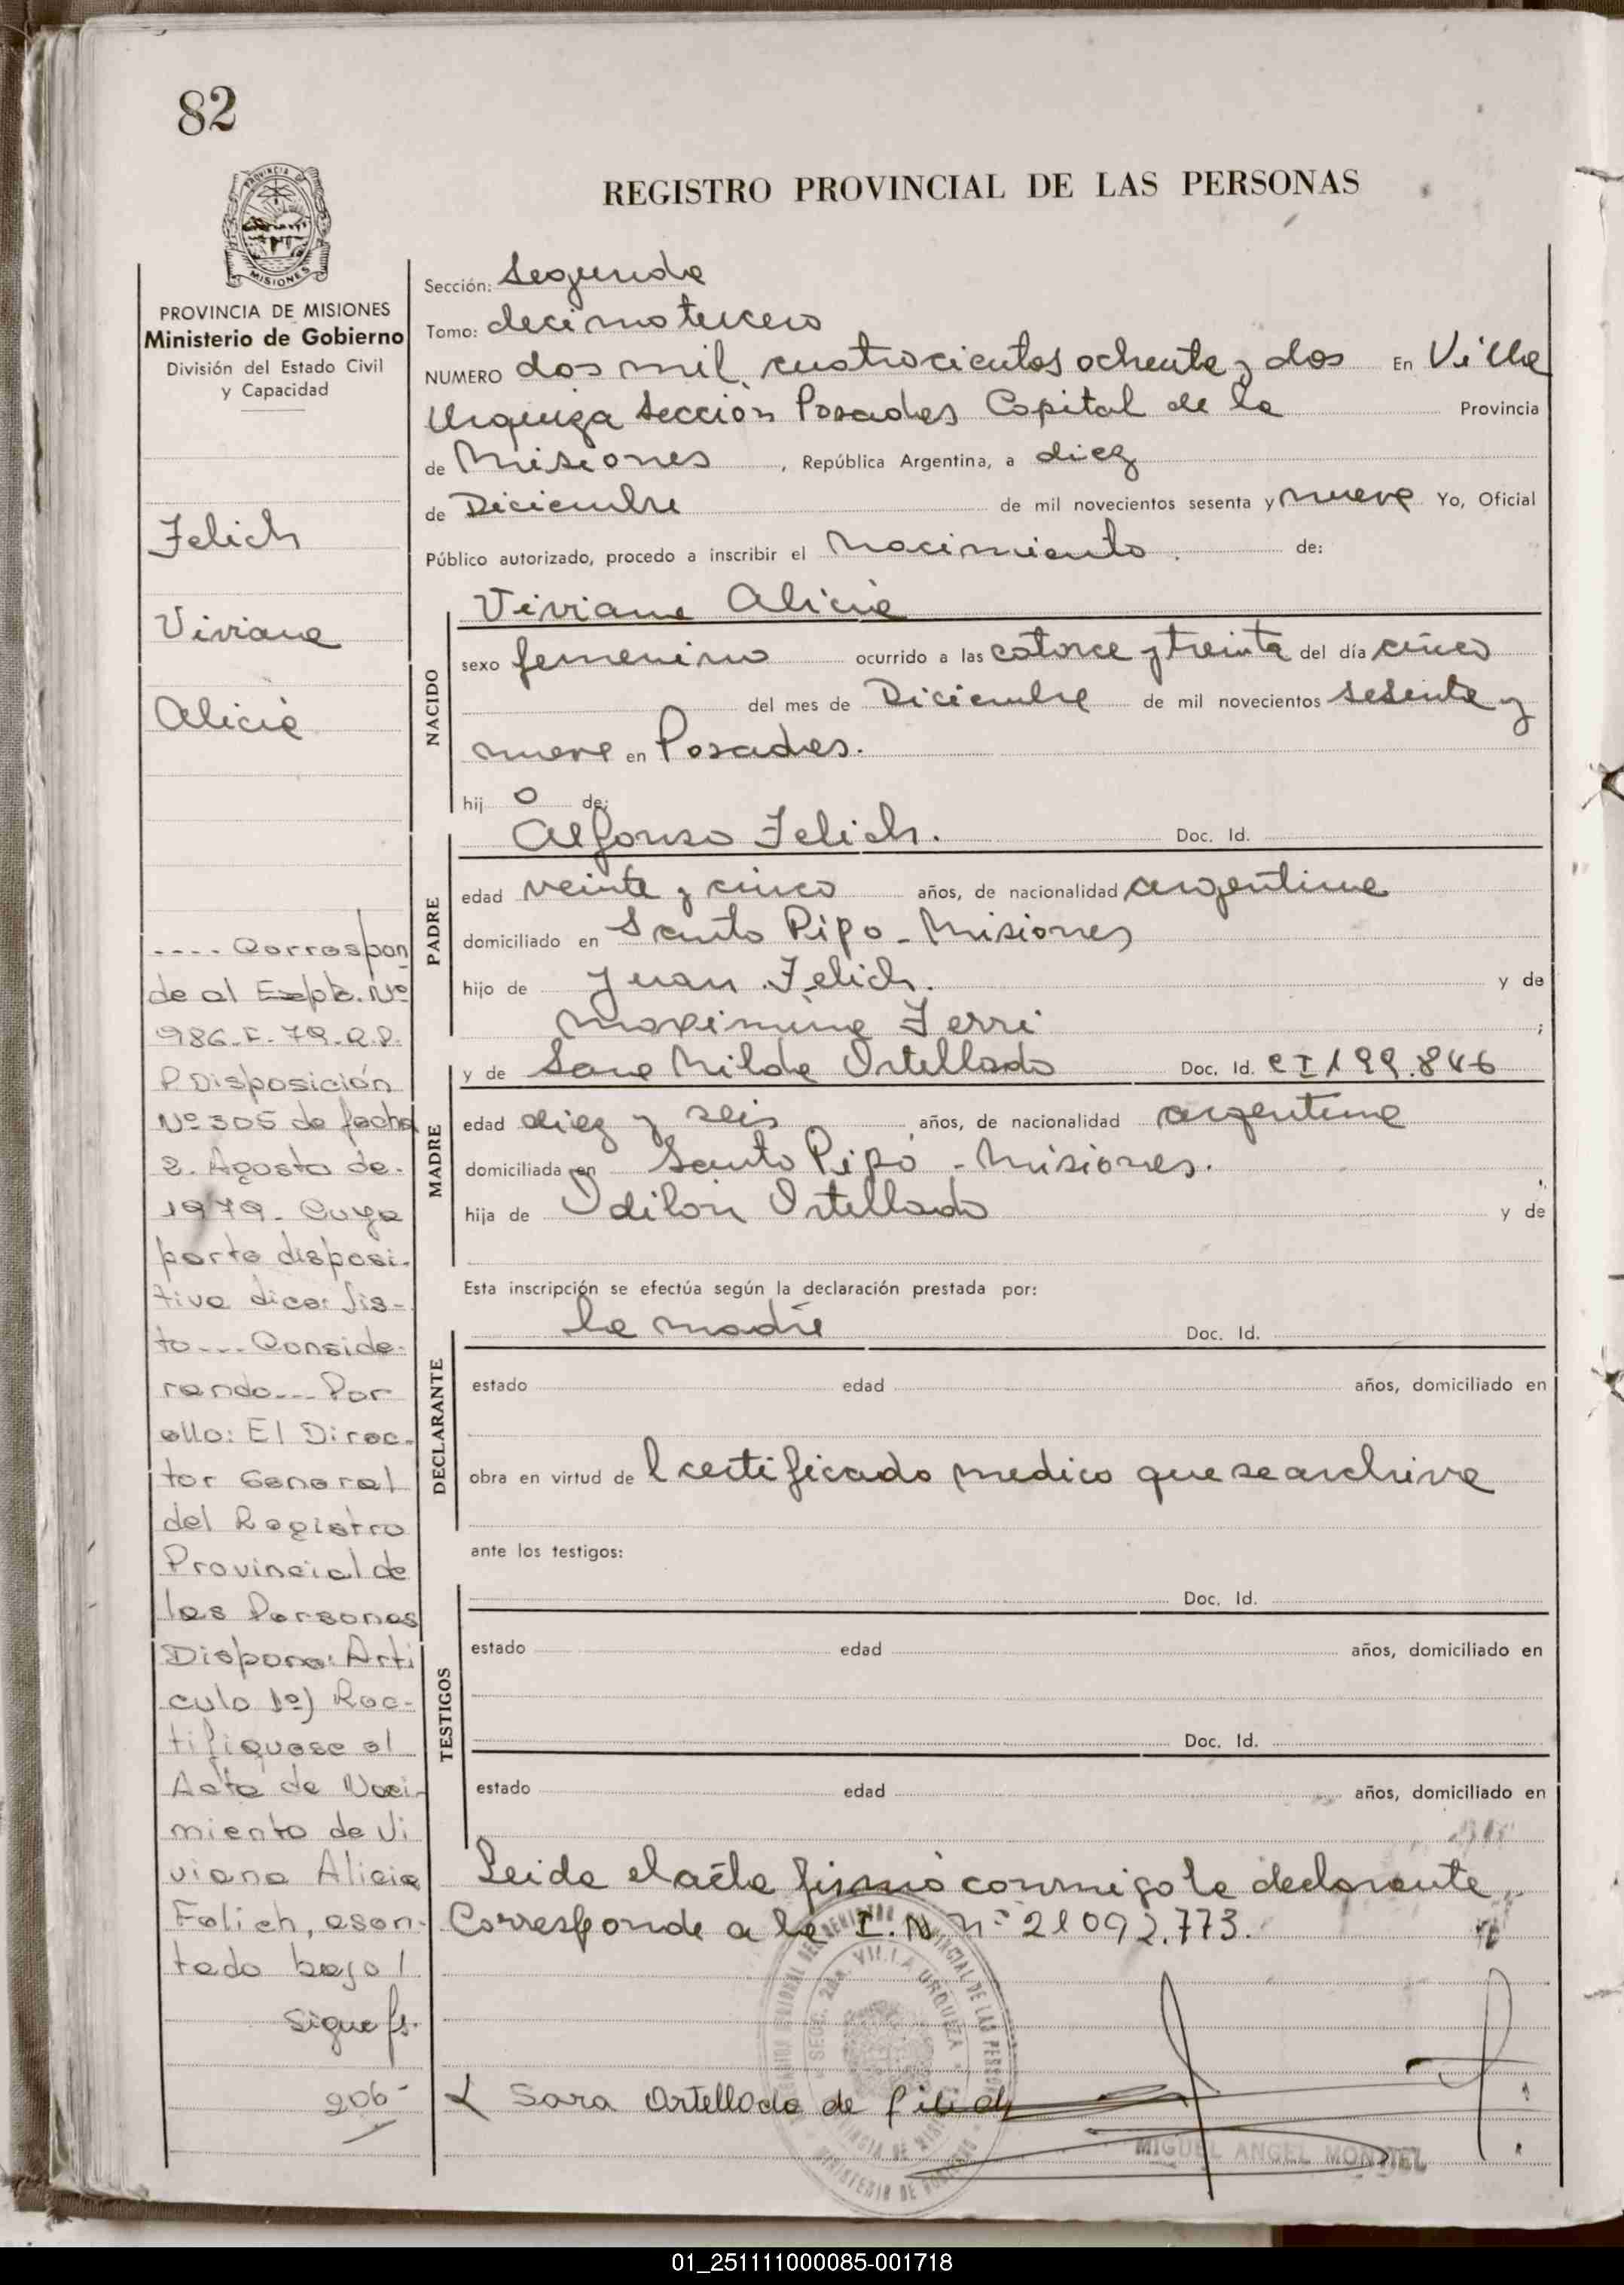 82
REGISTRO PROVINCIAL DE LAS PERSONAS
PROVINCIA DE MISIONES
MISIONES
PROVINCIA DE MISIONES
Ministerio de Gobierno
División del Estado Civil
y Capacidad
Felich
Viviana
Alicia
---- Correspon
de al Expte. Nº
986-F-79-R.P.
P Disposición
Nº 305 de fecha
2. Agosto de.
1979. Cuya
parte disposi-
tiva dice: Vis-
to --- Conside-
rando --- Por
ello: El Direc-
tor General
del Registro
Provincial de
las Personas
Dispone: Arti
culo 1º) Rec-
tifiquese el
Acta de Naci-
miento de Vi
viana Alicia
Felich, asen-
tada bajo /
Sigue fs.
206-
Sección: Segunda
Tomo: decimo tercero
NUMERO dos mil cuatrocientos ochenta y dos En Villa
Urquiza Sección Posadas Capital de la Provincia
de Misiones , República Argentina, a diez
de Diciembre de mil novecientos sesenta y nueve Yo, Oficial
Público autorizado, procedo a inscribir el Nacimiento . de:
NACIDO
Viviana Alicia
sexo femenino ocurrido a las catorce y treinta del día cinco
del mes de Diciembre de mil novecientos sesenta y
nueve en Posadas.
hij o de:
PADRE
Alfonso Felich. Doc. Id.
edad veinte y cinco años, de nacionalidad argentina
domiciliado en Santo Pipo - Misiones
hijo de Juan Felich. y de
Maximina Ferri ;
MADRE
y de Sara Nilda Ortellado Doc. Id. CI 199.846
edad diez y seis años, de nacionalidad argentina
domiciliada en Santo Pipó - Misiones.
hija de Odilon Ortellado y de
Esta inscripción se efectúa según la declaración prestada por:
DECLARANTE
la madre Doc. Id.
estado edad años, domiciliado en
obra en virtud de l certificado medico que se archiva
ante los testigos:
TESTIGOS
Doc. Id.
estado edad años, domiciliado en
Doc. Id.
estado edad años, domiciliado en
Leida el acta firmó conmigo la declarante
Corresponde a la I.N. nº 21092.773.
SECC. 2da. VILLA URQUIZA
Sara Ortellado de Felich
MIGUEL ANGEL MONTIEL
01_251111000085-001718